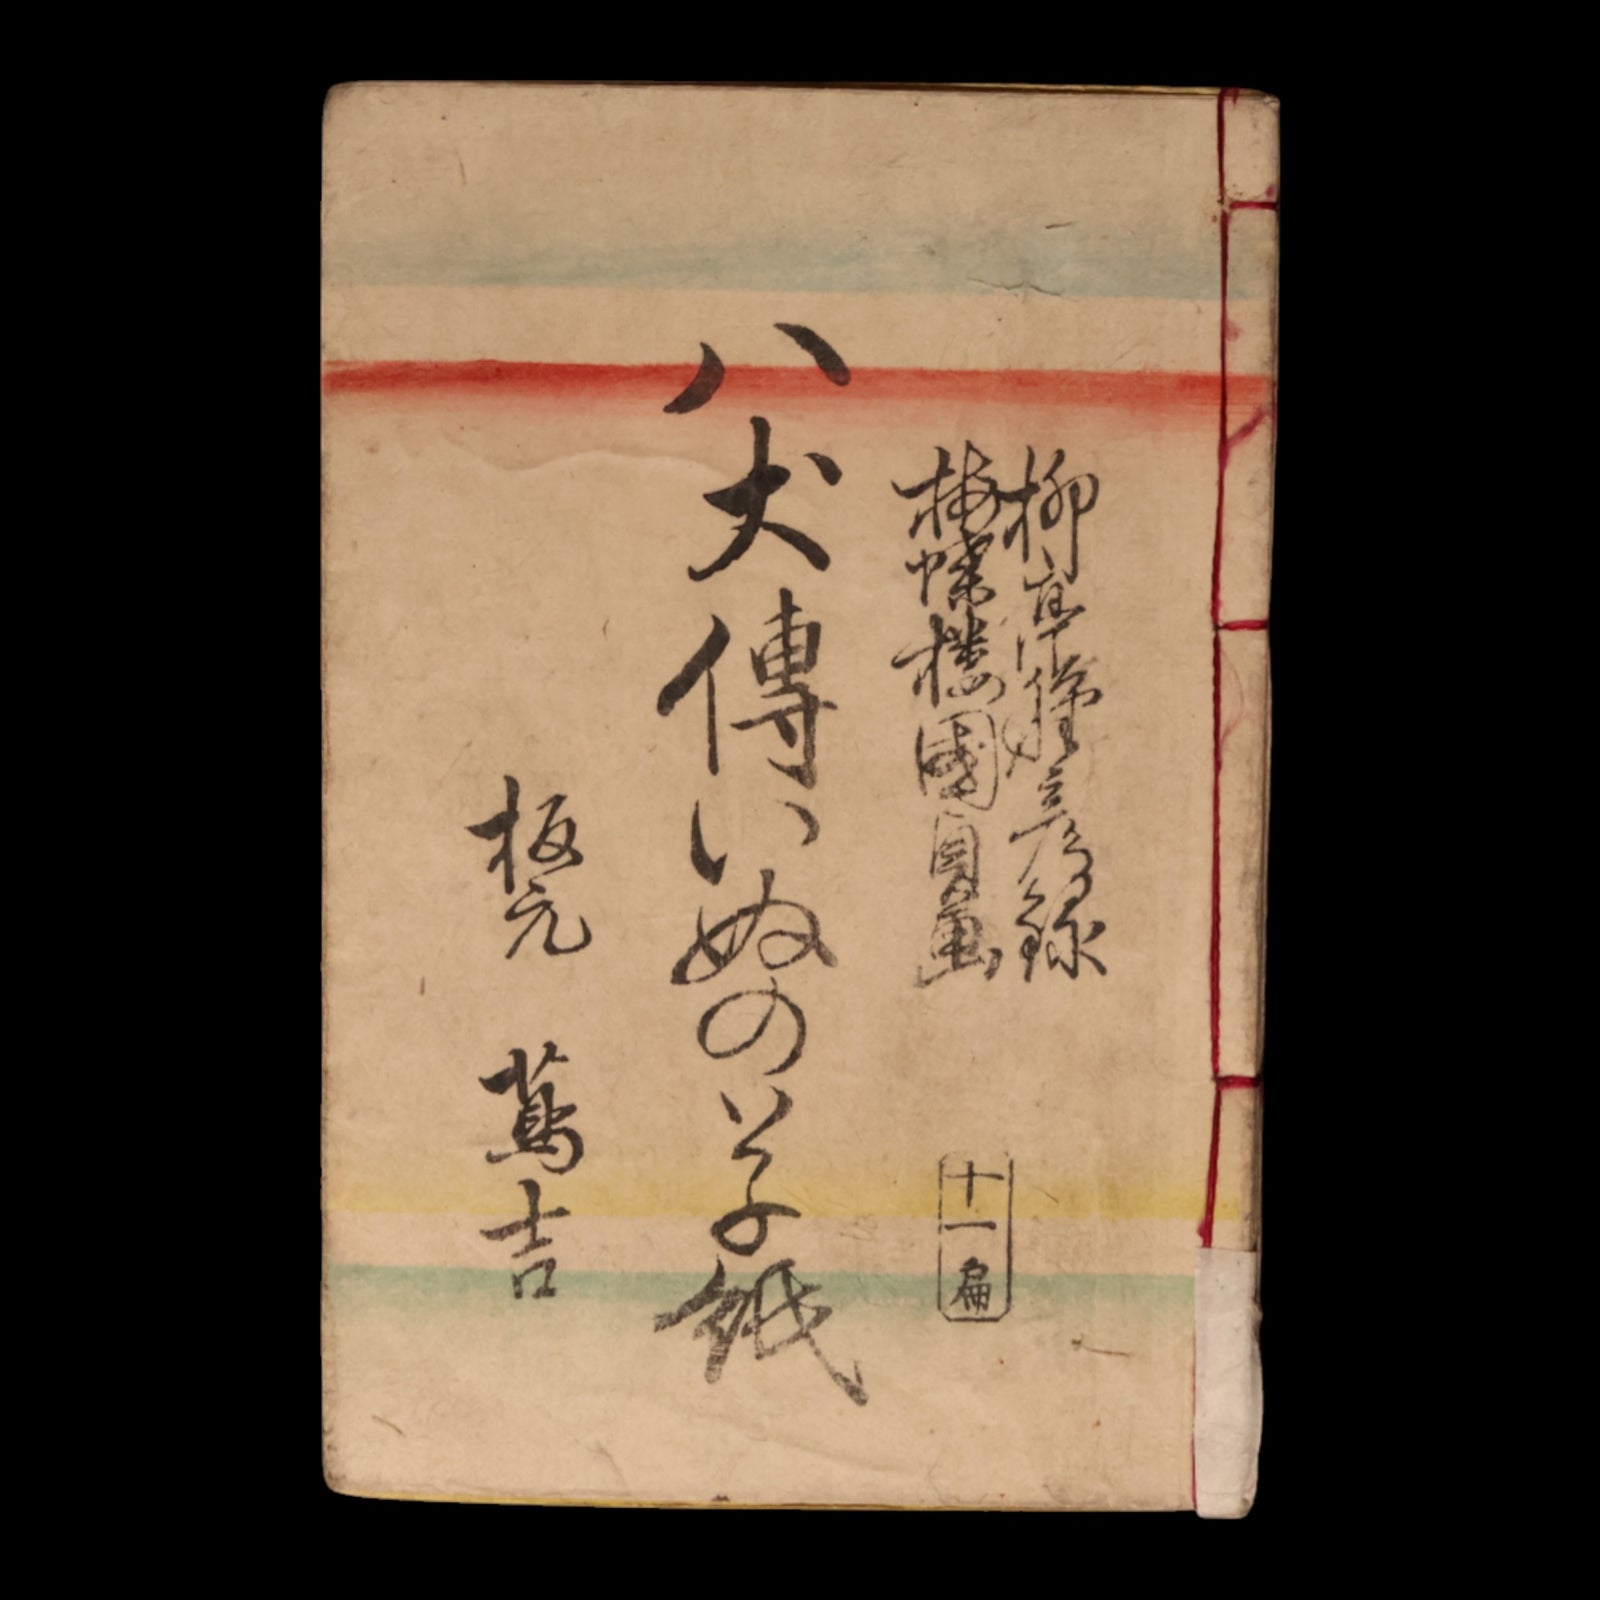 柳亭種彦録
梅蝶楼國貞画
十一扁
八犬傳いぬの草紙
板元 蔦吉